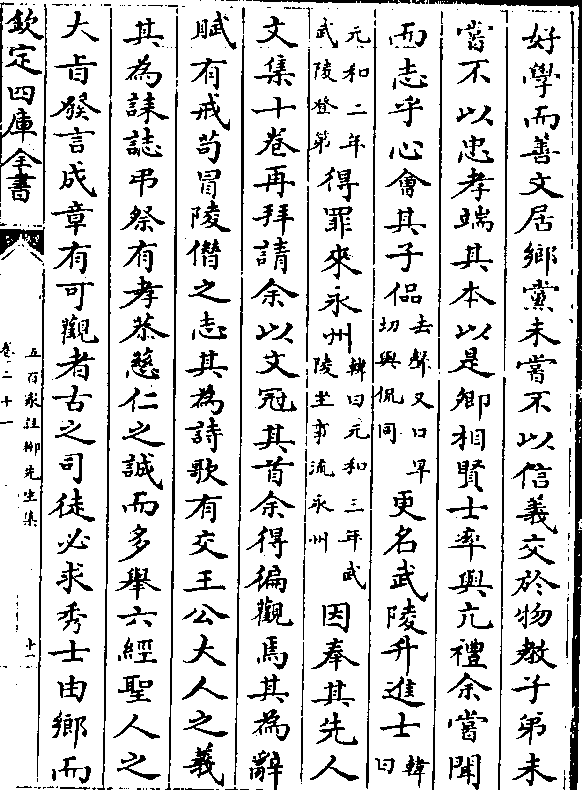 好學而善文居鄉黨未嘗不以信義交於物教子弟未
嘗不以忠孝端其本以是卿相賢士率與亢禮余嘗聞
而志乎心會其子侶去聲又口旱切與侃同更名武陵升進士韓曰
元和二年武陵登第得罪來永州韓曰元和三年武陵坐事流永州因奉其先人
文集十卷再拜請余以文冠其首余得徧觀焉其為辭
賦有戒苟冒陵僭之志其為詩歌有交王公大人之義
其為誄誌弔祭有孝恭慈仁之誠而多舉六經聖人之
大旨發言成章有可觀者古之司徒必求秀士由鄉而
欽定四庫全書
五百家註柳先生集
卷二十一
十一